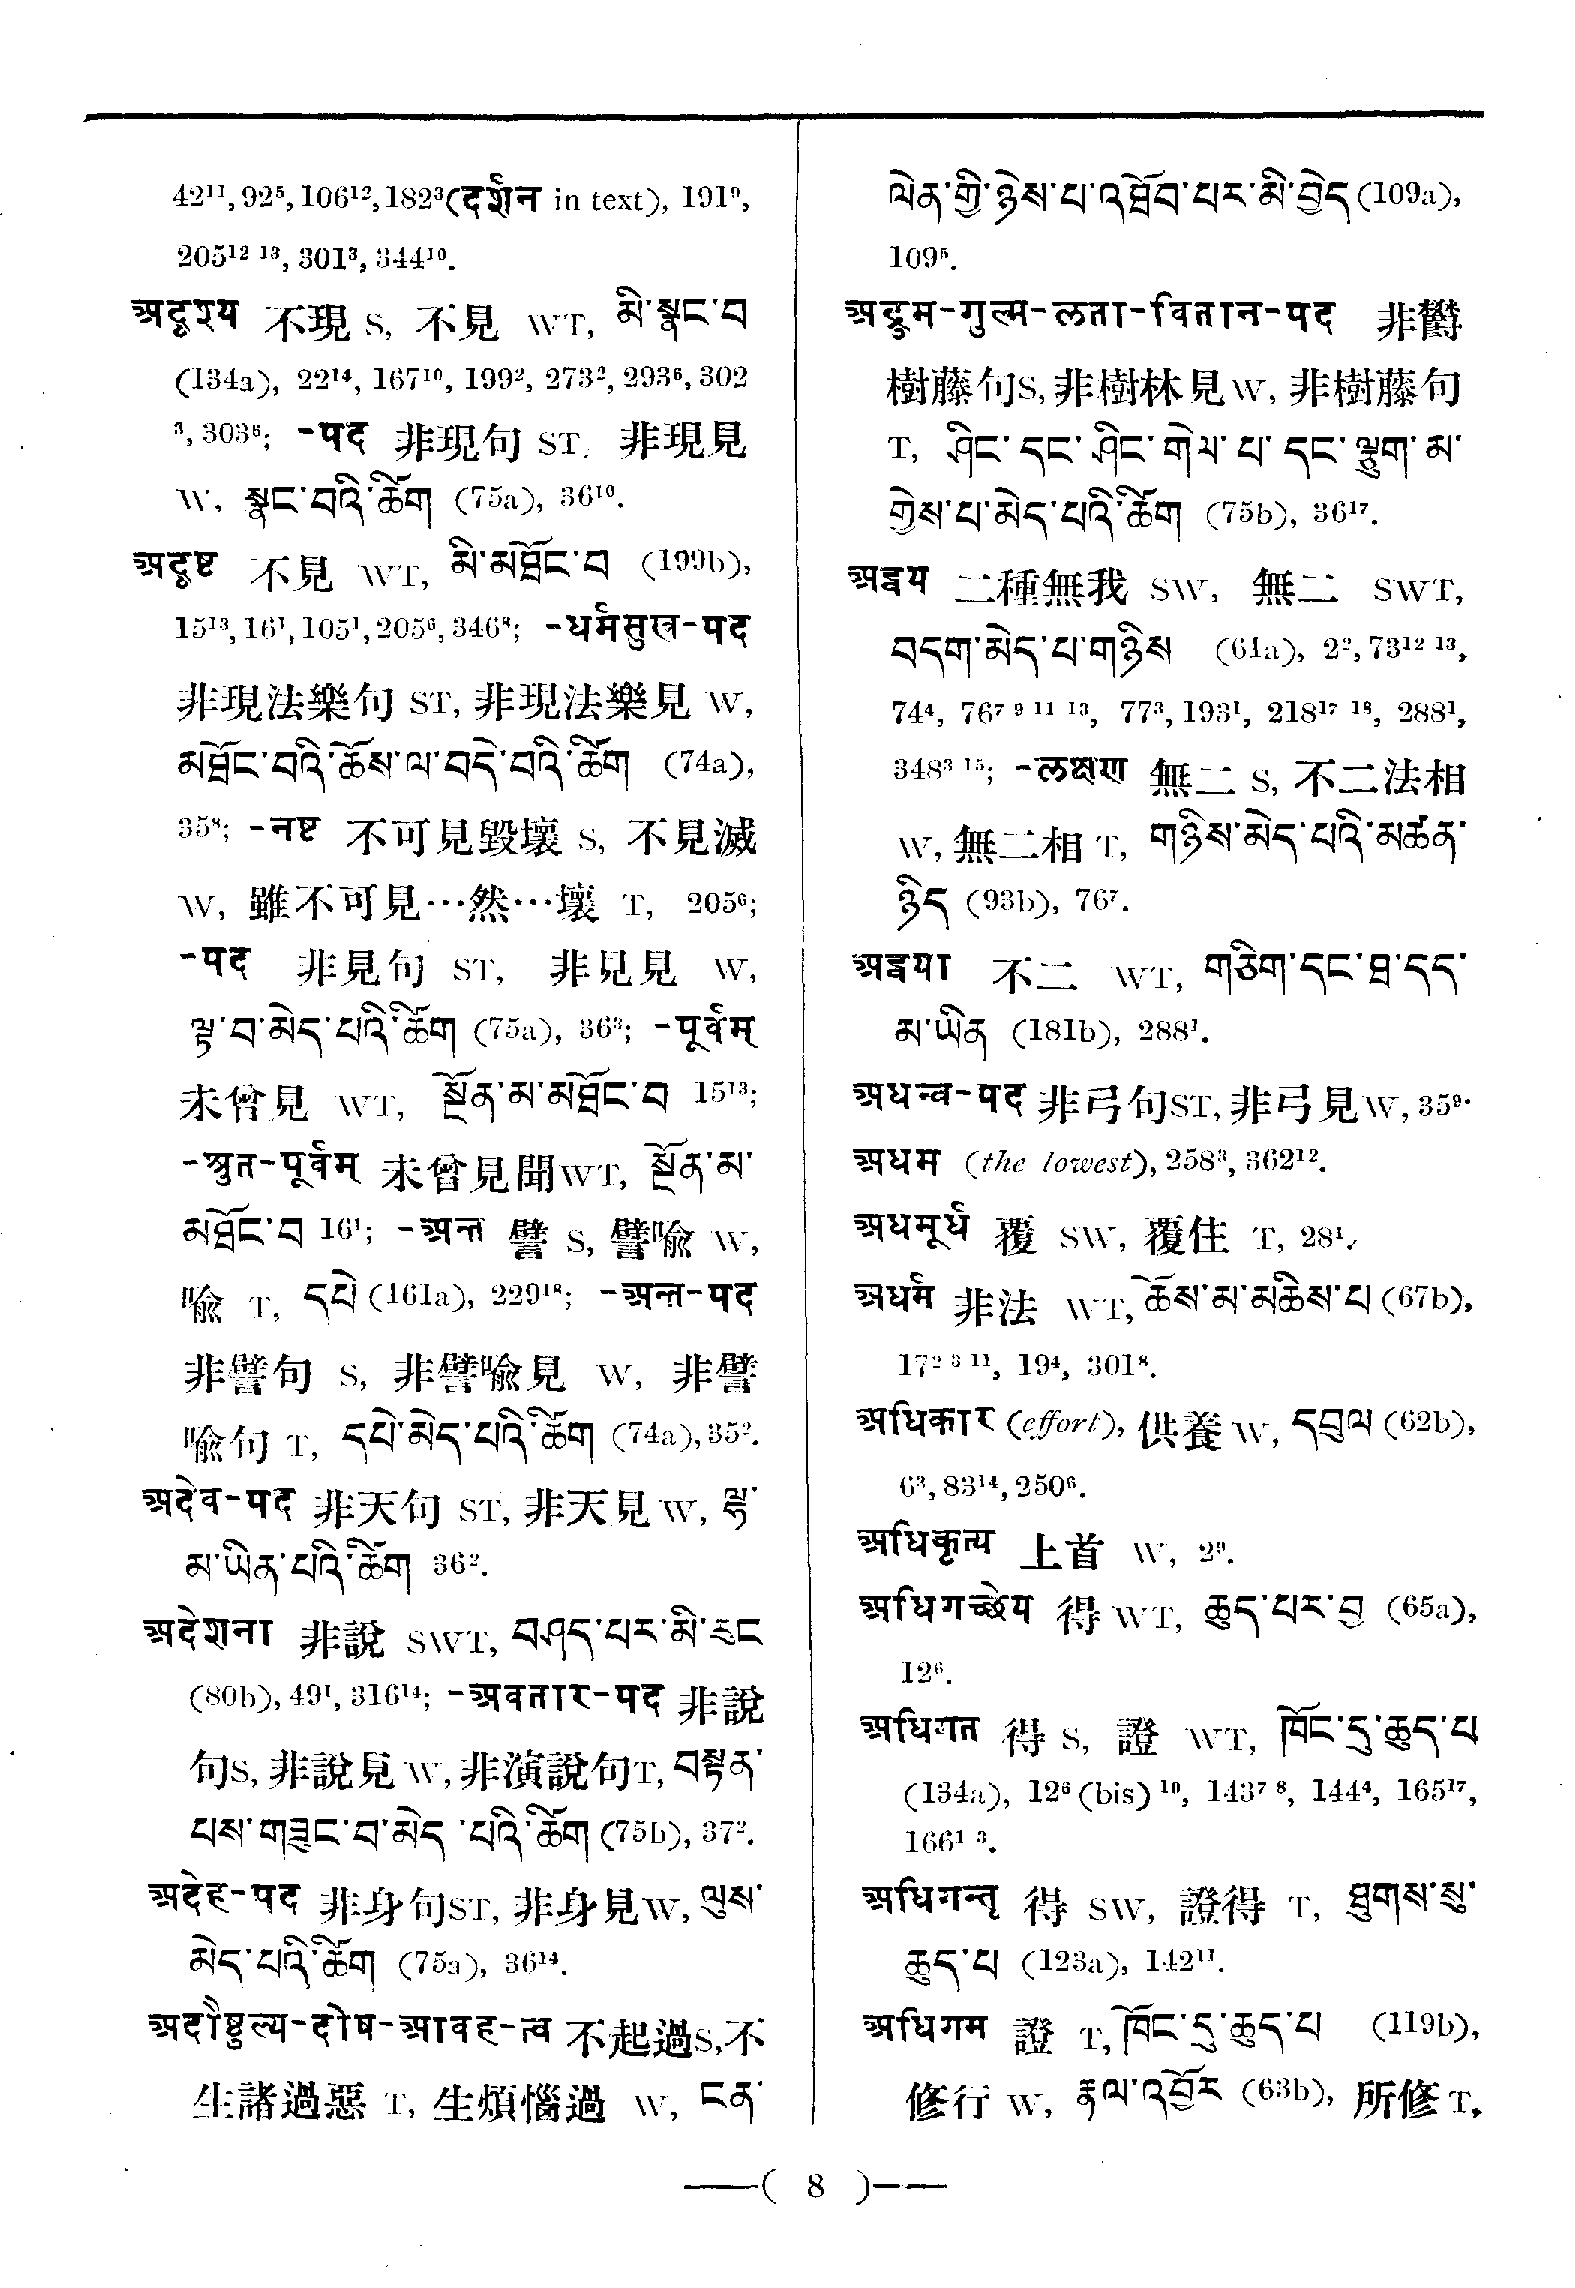 42¹¹, 92⁵, 106¹², 182³ (दर्शन in text), 191⁹,
205¹² ¹³, 301³, 344¹⁰.
अदृश्य 不現 S, 不見 WT, མི་སྣང་བ
(134a), 22¹⁴, 167¹⁰, 199², 273², 293⁶, 302
³, 303⁶; -पद 非現句 ST, 非現見
W, སྣང་བའི་ཚིག (75a), 36¹⁰.
अदृष्ट 不見 WT, མི་མཐོང་བ (199b),
15¹³, 16¹, 105¹, 205⁶, 346⁸; -धर्मसुख-पद
非現法樂句 ST, 非現法樂見 W,
མཐོང་བའི་ཆོས་ལ་བདེ་བའི་ཚིག (74a),
35⁸; -नष्ट 不可見毀壞 S, 不見滅
W, 雖不可見…然…壞 T, 205⁶;
-पद 非見句 ST, 非見見 W,
ལྟ་བ་མེད་པའི་ཚིག (75a), 36³; -पूर्वम्
未曾見 WT, སྔོན་མ་མཐོང་བ 15¹³;
-श्रुत-पूर्वम् 未曾見聞 WT, སྔོན་མ་
མཐོང་བ 16¹; -अन्त 譬 S, 譬喩 W,
喩 T, དཔེ (161a), 229¹⁸; -अन्त-पद
非譬句 S, 非譬喩見 W, 非譬
喩句 T, དཔེ་མེད་པའི་ཚིག (74a), 35².
अदेव-पद 非天句 ST, 非天見 W, ལྷ་
མ་ཡིན་པའི་ཚིག 36².
अदेशना 非說 SWT, བཤད་པར་མི་རུང
(80b), 49¹, 316¹⁴; -अवतार-पद 非說
句S, 非說見 W, 非演說句T, བསྟན་
པས་གཟུང་བ་མེད་པའི་ཚིག (75b), 37².
अदेह-पद 非身句ST, 非身見W, ལུས་
མེད་པའི་ཚིག (75a), 36¹⁴.
अदौष्ठुल्य-दोष-आवह-त्व 不起過S, 不
生諸過惡 T, 生煩惱過 W, ངན་
ལེན་གྱི་ཉེས་པ་འཐོབ་པར་མི་བྱེད (109a),
109⁵.
अद्रुम-गुल्म-लता-वितान-पद 非欝
樹藤句S, 非樹林見W, 非樹藤句
T, ཤིང་དང་ཤིང་གེལ་པ་དང་ལྕུག་མ་
གྱེས་པ་མེད་པའི་ཚིག (75b), 36¹⁷.
अद्वय 二種無我 SW, 無二 SWT,
བདག་མེད་པ་གཉིས (61a), 2², 73¹² ¹³,
74⁴, 76⁷ ⁹ ¹¹ ¹³, 77³, 193¹, 218¹⁷ ¹⁸, 288¹,
348³ ¹⁵; -लक्षण 無二 S, 不二法相
W, 無二相 T, གཉིས་མེད་པའི་མཚན་
ཉིད (93b), 76⁷.
अद्वया 不二 WT, གཅིག་དང་ཐ་དད་
མ་ཡིན (181b), 288¹.
अधन्व-पद 非弓句ST, 非弓見W, 35⁹.
अधम (the lowest), 258³, 362¹².
अधमूर्ध 覆 SW, 覆住 T, 28¹.
अधर्म 非法 WT, ཆོས་མ་མཆིས་པ (67b),
17² ³ ¹¹, 19⁴, 301⁸.
अधिकार (effort), 供養 W, དབུལ (62b),
6³, 83¹⁴, 250⁶.
अधिकृत्य 上首 W, 2⁹.
अधिगच्छेय 得 WT, ཆུད་པར་བྱ (65a),
12⁶.
अधिगत 得 S, 證 WT, ཁོང་དུ་ཆུད་པ
(134a), 12⁶ (bis) ¹⁰, 143⁷ ⁸, 144⁴, 165¹⁷,
166¹ ³.
अधिगन्तृ 得 SW, 證得 T, ཐུགས་སུ་
ཆུད་པ (123a), 142¹¹.
अधिगम 證 T, ཁོང་དུ་ཆུད་པ (119b),
修行 W, རྣལ་འབྱོར (63b), 所修 T,
—( 8 )—